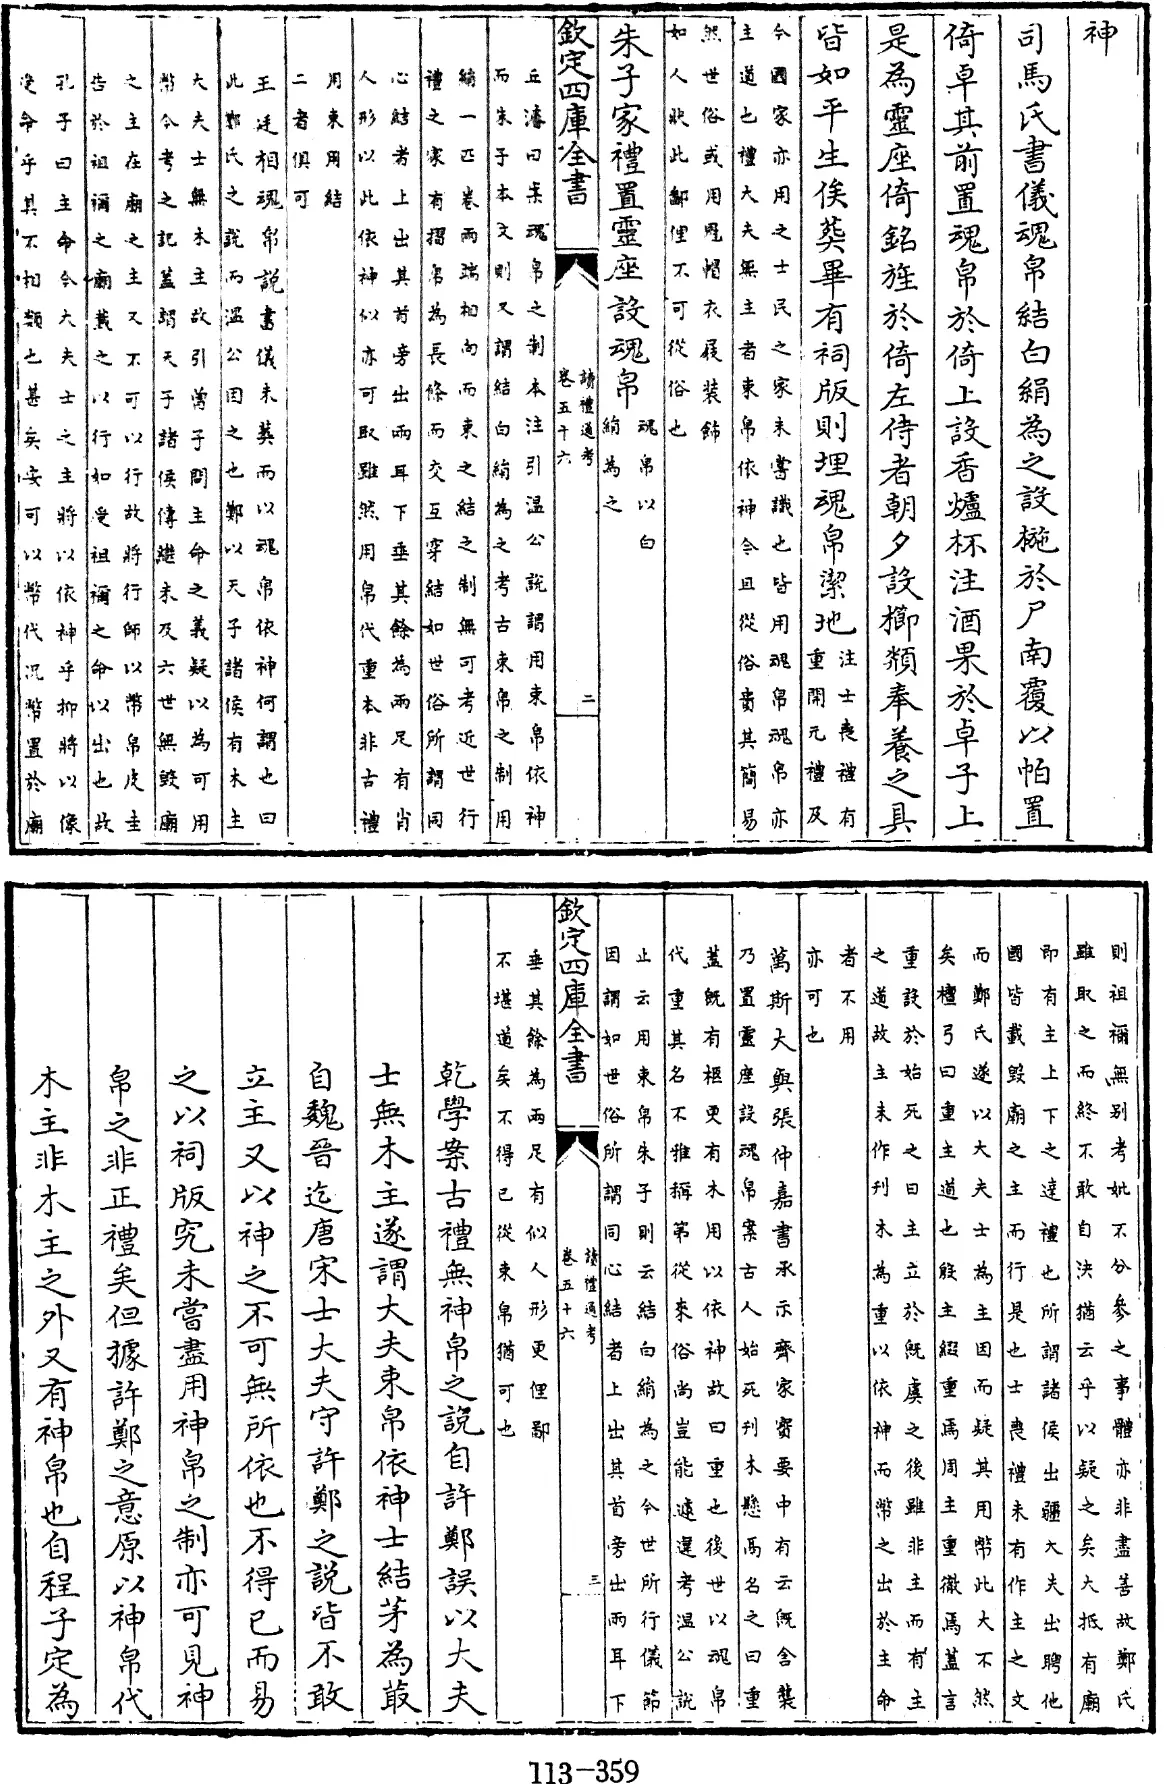 神
司馬氏書儀魂帛結白絹為之設椸於尸南覆以帕置
倚卓其前置魂帛於倚上設香爐杯注酒果於卓子上
是為靈座倚銘旌於倚左侍者朝夕設櫛頮奉養之具
皆如平生俟葬畢有祠版則埋魂帛潔地注士喪禮有
重開元禮及
今國家亦用之士民之家未嘗識也皆用魂帛魂帛亦
主道也禮大夫無主者束帛依神今且從俗貴其簡易
然世俗或用冠帽衣屐裝飾
如人狀此鄙俚不可從俗也
朱子家禮置靈座設魂帛魂帛以白
絹為之
欽定四庫全書
讀禮通考
卷五十六
二
丘濬曰案魂帛之制本注引温公說謂用束帛依神
而朱子本文則又謂結白絹為之考古束帛之制用
絹一匹卷兩端相向而束之結之制無可考近世行
禮之家有摺帛為長條而交互穿結如世俗所謂同
心結者上出其首旁出兩耳下垂其餘為兩足有肖
人形以此依神似亦可取雖然用帛代重本非古禮
用束用結
二者俱可
王廷相魂帛說書儀未葬而以魂帛依神何謂也曰
此鄭氏之說而温公因之也鄭以天子諸侯有木主
大夫士無木主故引曾子問主命之義疑以為可用
幣今考之記蓋謂天子諸侯傳繼未及六世無毀廟
之主在廟之主又不可以行故將行師以幣帛皮圭
告於祖禰之廟載之以行如受祖禰之命以出也故
孔子曰主命今大夫士之主將以依神乎抑將以像
受命乎其不相類也甚矣安可以幣代况幣置於廟
則祖禰無别考妣不分參之事體亦非盡善故鄭氏
雖取之而終不敢自決猶云乎以疑之矣大抵有廟
即有主上下之達禮也所謂諸侯出疆大夫出聘他
國皆載毀廟之主而行是也士喪禮未有作主之文
而鄭氏遂以大夫士為主因而疑其用幣此大不然
矣檀弓曰重主道也殷主綴重焉周主重徹焉蓋言
重設於始死之日主立於既虞之後雖非主而有主
之道故主未作刊木為重以依神而幣之出於主命
者不用
亦可也
萬斯大與張仲嘉書承示齊家寶要中有云既含襲
乃置靈座設魂帛案古人始死刊木懸鬲名之曰重
蓋既有柩更有木用以依神故曰重也後世以魂帛
代重其名不雅稱第從來俗尚豈能遽還考温公說
止云用束帛朱子則云結白絹為之今世所行儀節
因謂如世俗所謂同心結者上出其首旁出兩耳下
欽定四庫全書
讀禮通考
卷五十六
三
垂其餘為兩足有似人形更俚鄙
不堪道矣不得已從束帛猶可也
乾學案古禮無神帛之說自許鄭誤以大夫
士無木主遂謂大夫束帛依神士結茅為菆
自魏晉迄唐宋士大夫守許鄭之說皆不敢
立主又以神之不可無所依也不得已而易
之以祠版究未嘗盡用神帛之制亦可見神
帛之非正禮矣但據許鄭之意原以神帛代
木主非木主之外又有神帛也自程子定為
113-359